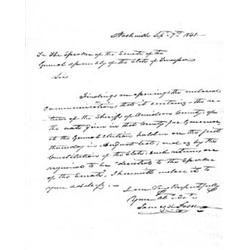 Nashville Sep. 7th 1841
To the Speaker of the Senate of the
General Assembly of the State of Tennessee
Sir
Finding on opening the enclosed
communication that it contains the re-
turn of the Sheriff of Davidson County, of
the votes given in that County for Governor
at the General Election, holden on the first
thursday in August last, and as by the
Constitution of the State, such returns are
required to be directed to the Speaker
of the Senate. I herewith enclose it to
your address.
I am Very Respectfully
Your Ob. St.